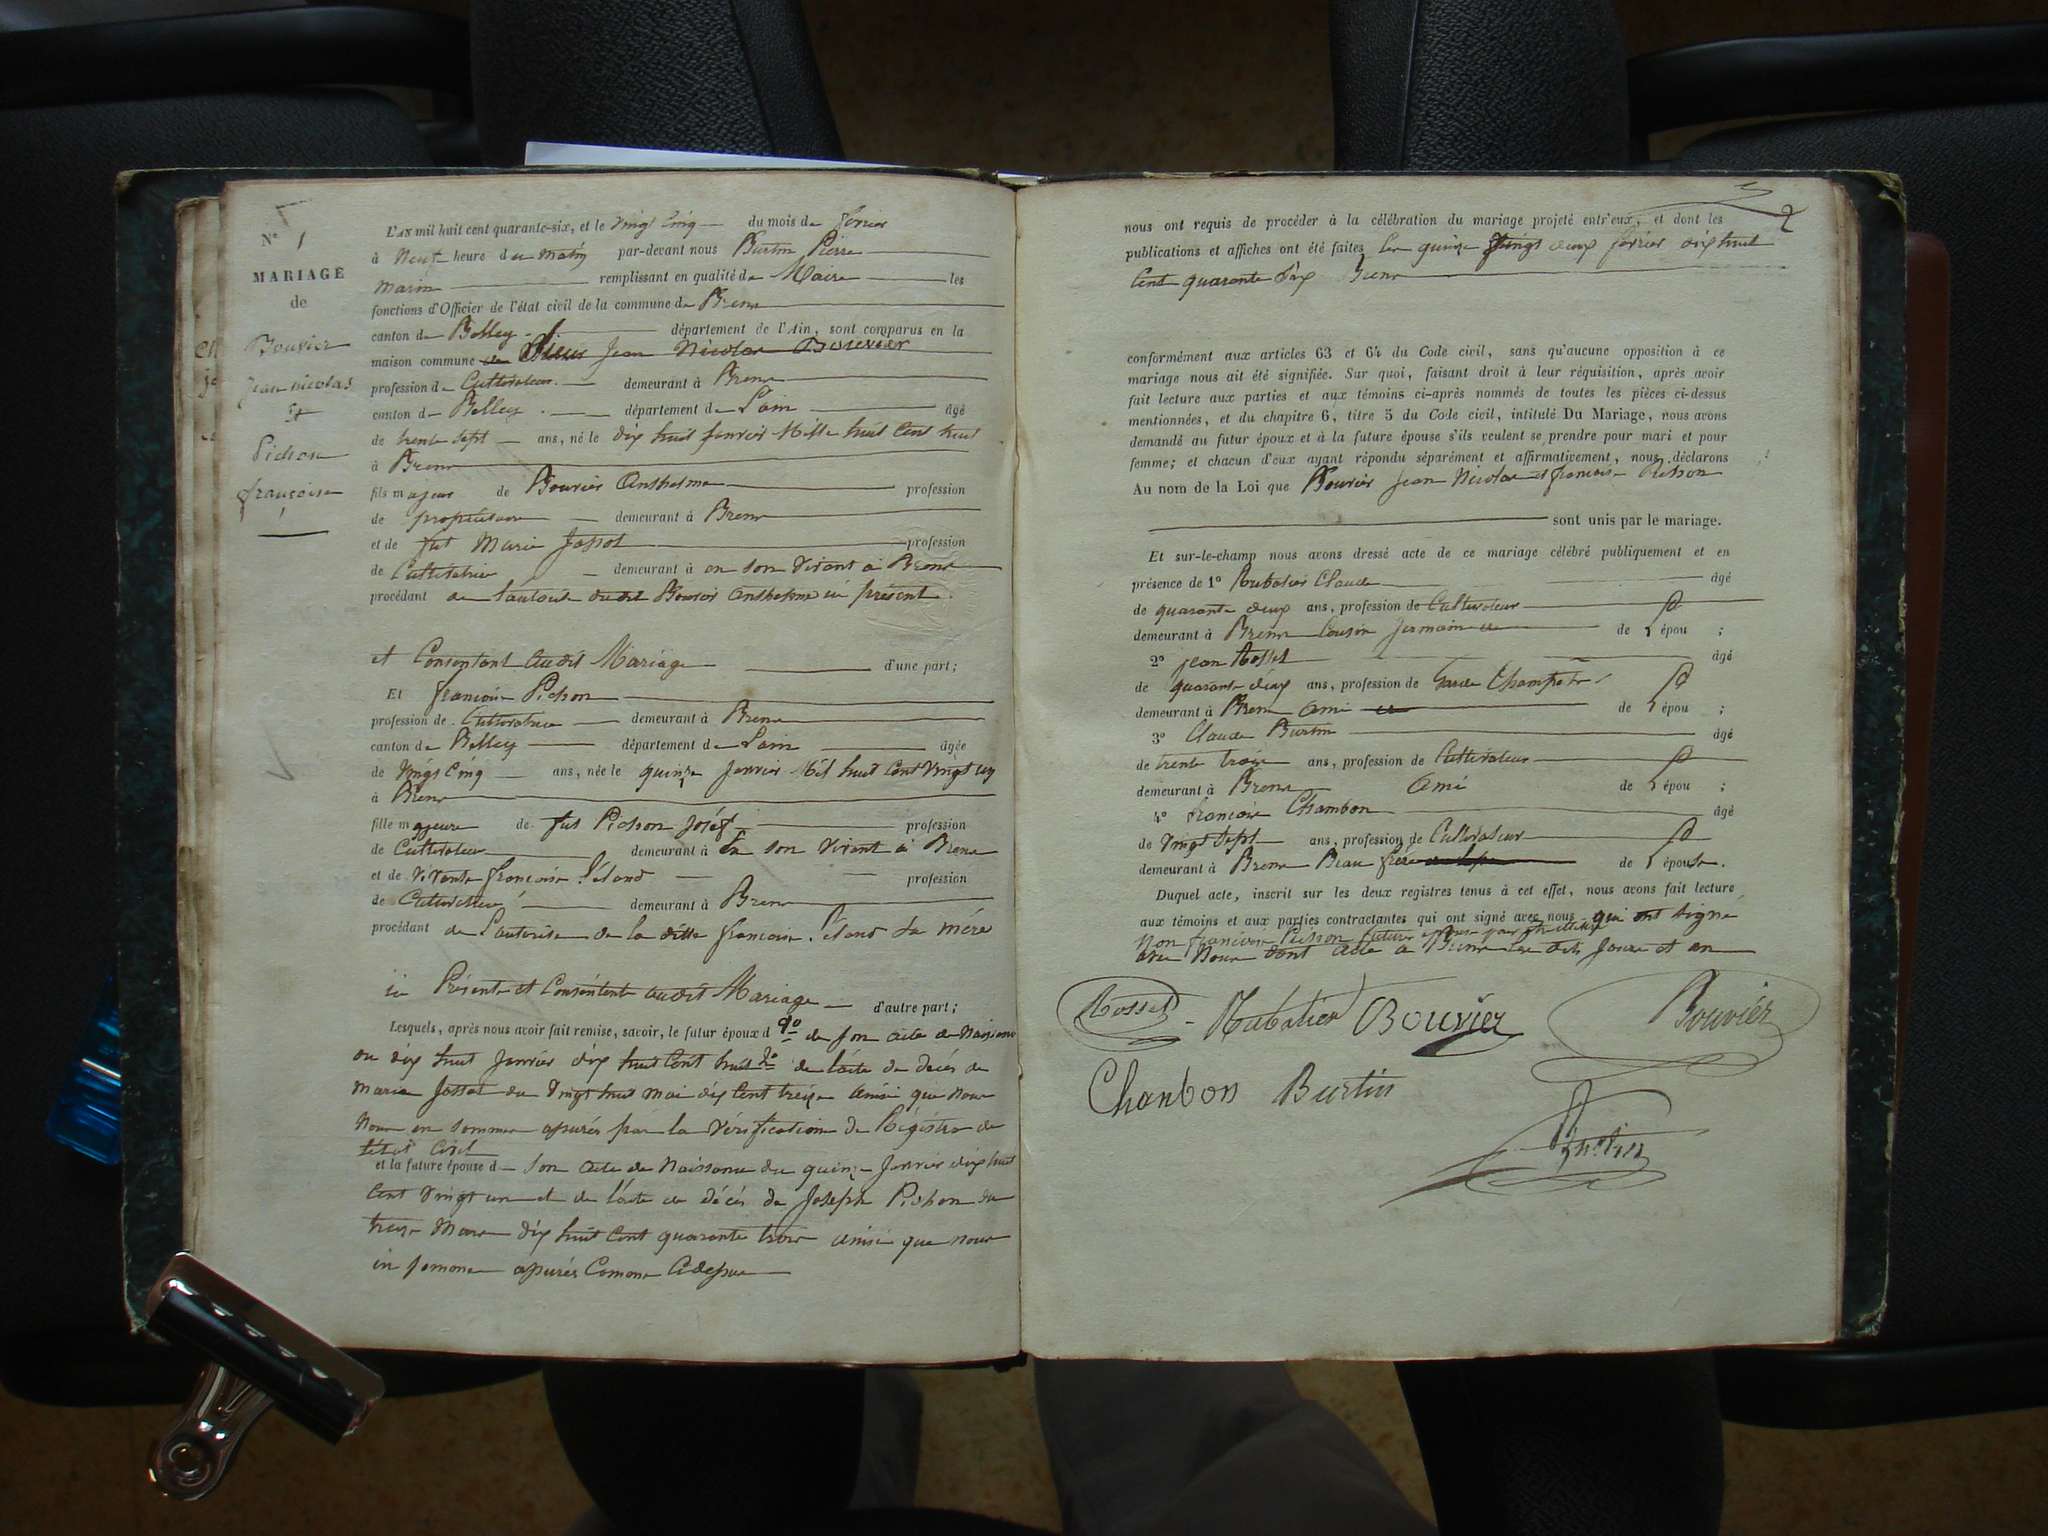 N° 1
MARIAGE
de
Bouvier
jean nicolas
Et
Pichon
françoise
L'AN mil huit cent quarante-six, et le vingt Cinq du mois de fevrier
à Neuf heure du matin par-devant nous Burtin Pierre
Marin remplissant en qualité de Maire les
fonctions d'Officier de l'état civil de la commune de Brens
canton de Belley département de l'Ain, sont comparus en la
maison commune Sieur Jean Nicolas Bouvier
profession de Cultivateur demeurant à Brens
canton de Belley département de Lain âgé
de trente sept ans, né le dix huit janvier Mille huit Cent huit
à Brens
fils majeur de Bouvier Anthelme profession
de propriétaire demeurant à Brens
et de fut Marie Jassot profession
de Cultivatrice demeurant à en son vivant à Brens
procédant de l'autorité dudit Bouvier anthelme ici présent
et Consentant audit Mariage d'une part;
Et françoise Pichon
profession de Cultivatrice demeurant à Brens
canton de Belley département de Lain âgée
de vingt Cinq ans, née le quinze janvier Mil huit Cent vingt un
à Brens
fille majeure de fut Pichon Joséf profession
de Cultivateur demeurant à En son vivant à Brens
et de vivante françoise profession
de Cultivatrice demeurant à Brens
procédant de L'autorité de la ditte françoise Sa mére
ici Présente et Consentente audit Mariage d'autre part;
Lesquels, après nous avoir fait remise, savoir, le futur époux d 1° de son acte de Naissance
du dix huit janvier dix huit Cent huit 2° de l'acte de décès de
Marie Jassot du vingt huit mai dix Cent treize ainsi que nous
Nous en sommes apurés par la vérification du Régistre de
l'état Civil
et la future épouse d son acte de Naissance du quinze Janvier dix huit
Cent vingt un et de l'acte de décès de Joseph Pichon du
treize Mars dix huit Cent quarante trois ainsi que nous
in somme apurés Comme
2
nous ont requis de procéder à la célébration du mariage projeté entr'eux, et dont les
publications et affiches ont été faites Les quinze vingt deux fevrier dix huit
Cent quarante Six Brens
conformément aux articles 63 et 64 du Code civil, sans qu'aucune opposition à ce
mariage nous ait été signifiée. Sur quoi, faisant droit à leur réquisition, après avoir
fait lecture aux parties et aux témoins ci-après nommés de toutes les pièces ci-dessus
mentionnées, et du chapitre 6, titre 5 du Code civil, intitulé Du Mariage, nous avons
demandé au futur époux et à la future épouse s'ils veulent se prendre pour mari et pour
femme; et chacun d'eux ayant répondu séparément et affirmativement, nous déclarons
Au nom de la Loi que Bouvier Jean Nicolas et françoise Pichon
sont unis par le mariage.
Et sur-le-champ nous avons dressé acte de ce mariage célébré publiquement et en
présence de 1° Rubatier Claude âgé
de quarante deux ans, profession de Cultivateur
demeurant à Brens Cousin Jermain de l époux ;
2° jean Rosset âgé
de quarante deux ans, profession de Garde Champêtre
demeurant à Brens Ami de l époux ;
3° Claude Burtin âgé
de trente trois ans, profession de Cultivateur
demeurant à Brens Ami de l époux ;
4° françois Chambon âgé
de vingt Sept ans, profession de Cultivateur
demeurant à Brens Beau frère de l épouse.
Duquel acte, inscrit sur les deux registres tenus à cet effet, nous avons fait lecture
aux témoins et aux parties contractantes qui ont signé avec nous qui ont signé
Non françoise Pichon future
avec Nous dont acte à Brens Les dits Jours et an
Rosset Rubatier Bouvier Bouvier
Chanbon Burtin
Burtin